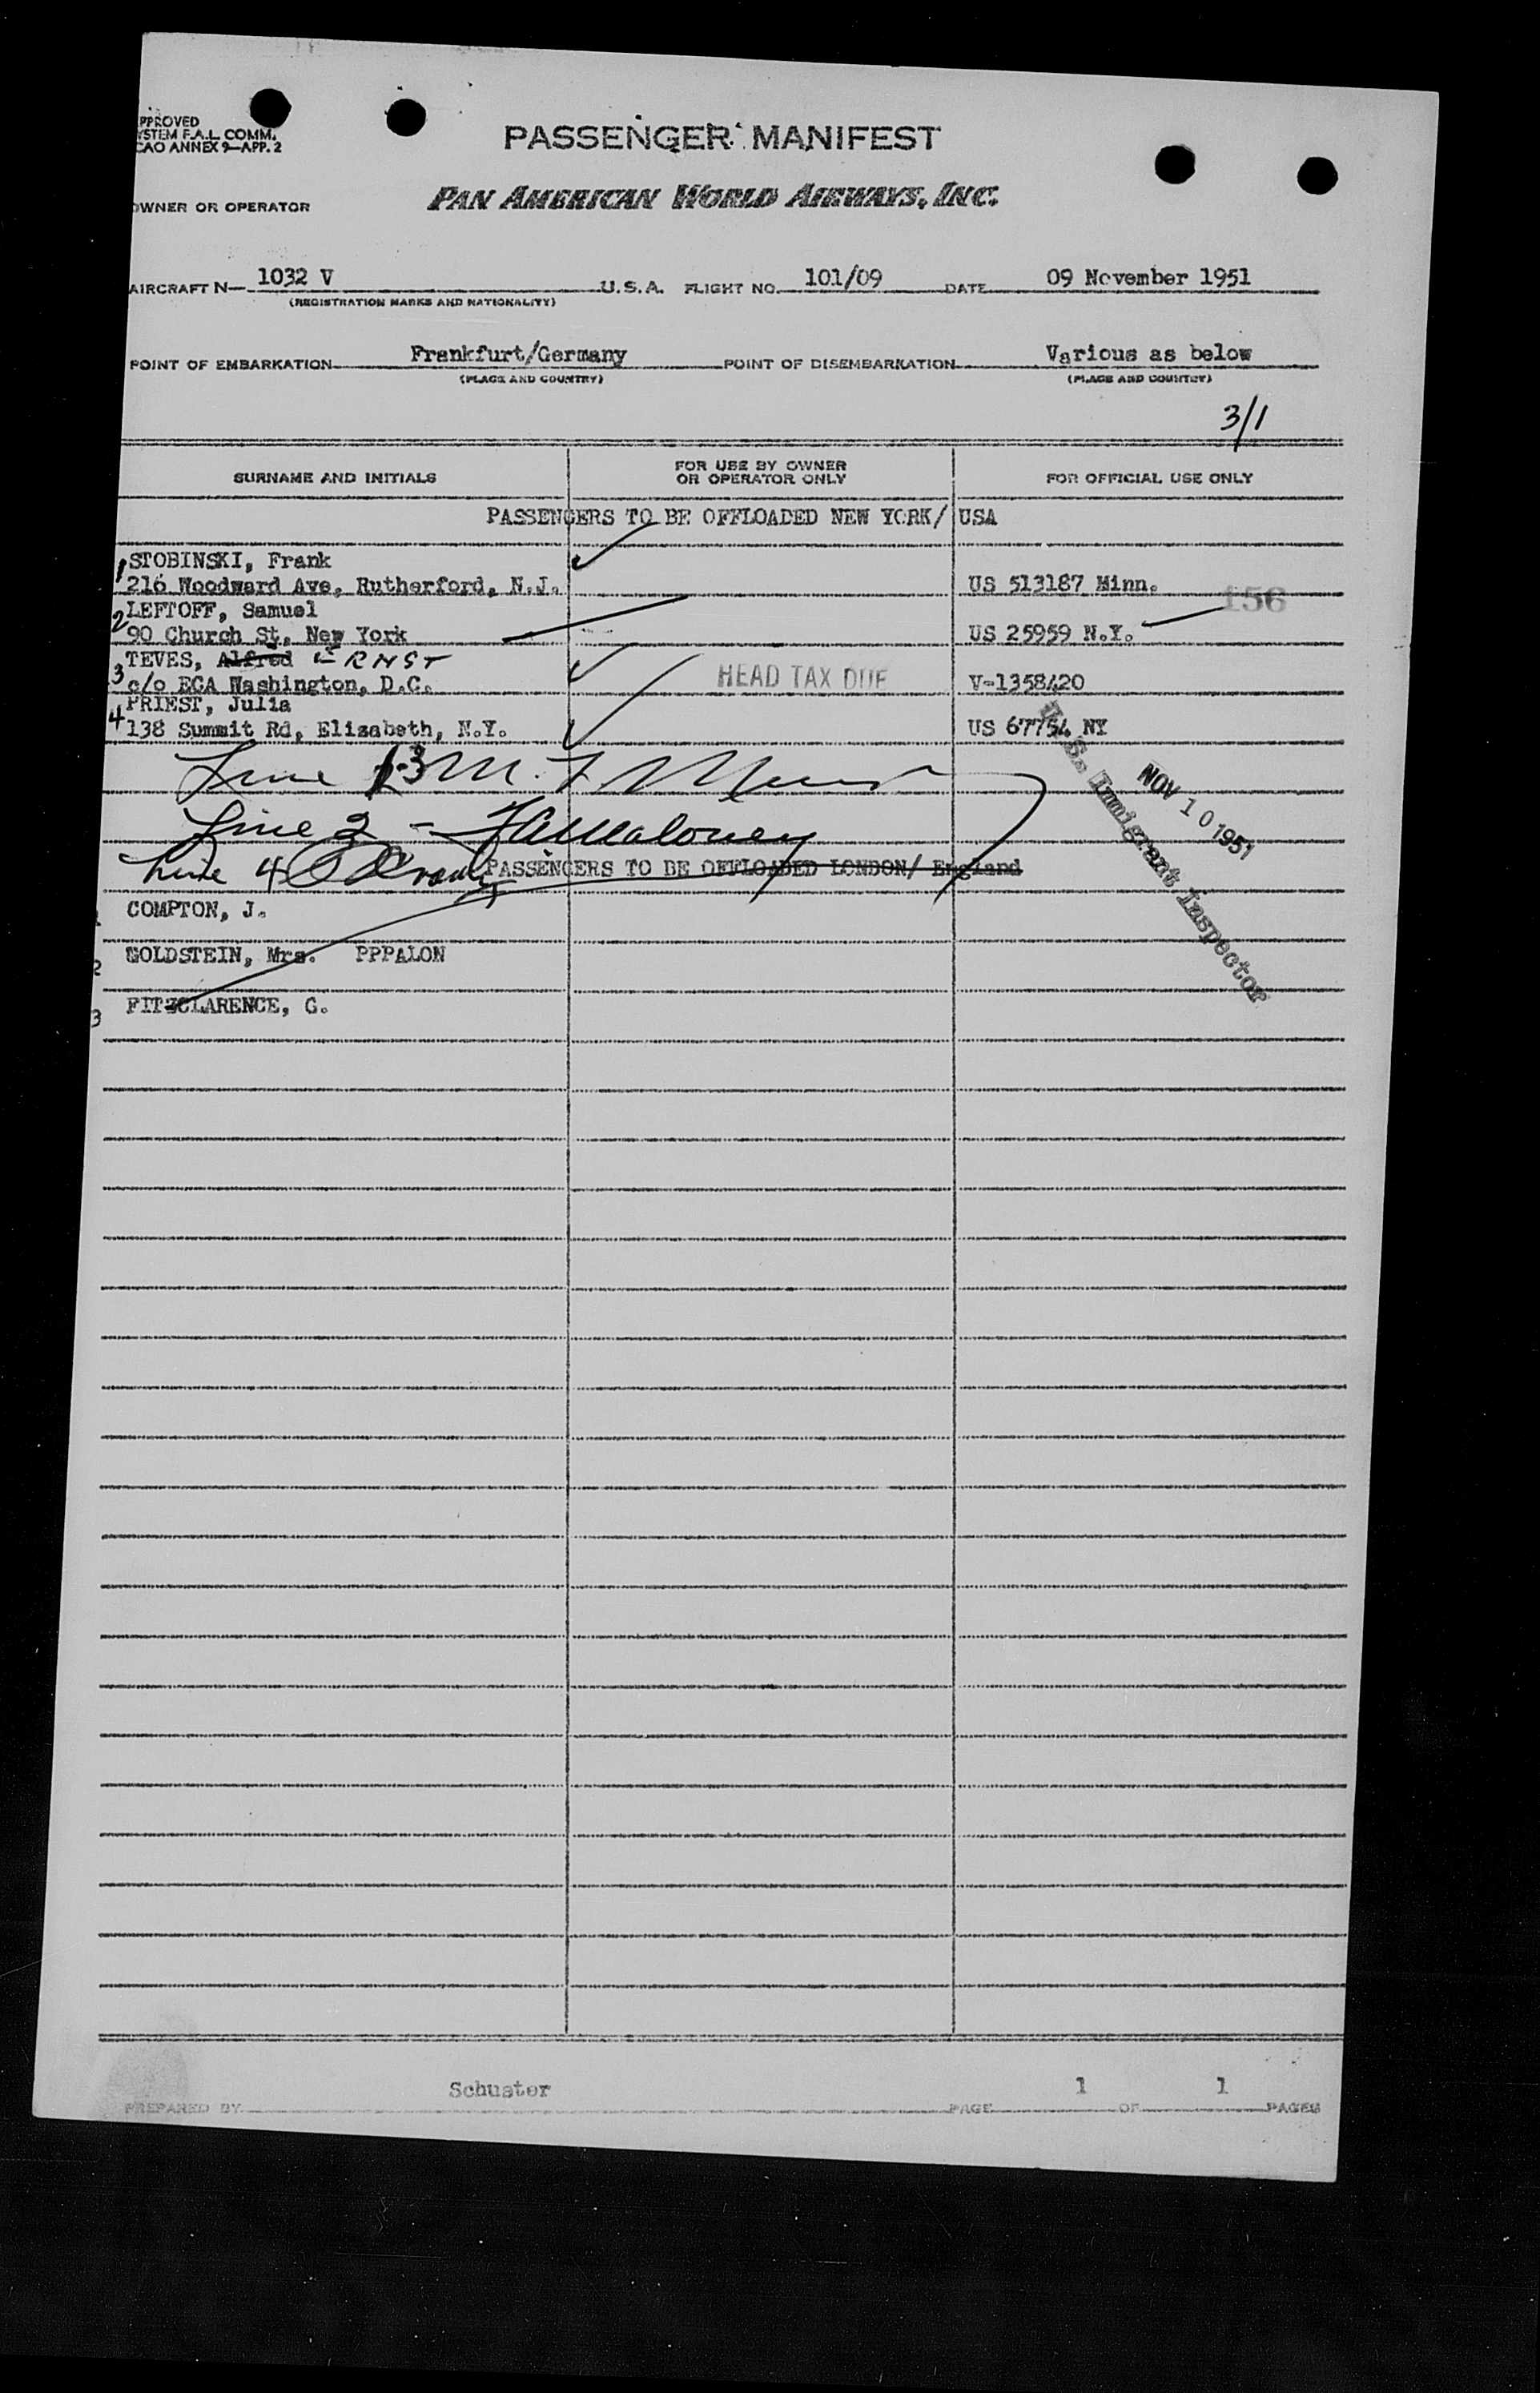 PPROVED
YSTEM F.A.L. COMM.
CAO ANNEX 9—APP. 2
PASSENGER MANIFEST
OWNER OR OPERATOR
PAN AMERICAN WORLD AIRWAYS, INC.
AIRCRAFT N— 1032 V U.S.A. FLIGHT NO. 101/09 DATE 09 November 1951
(REGISTRATION MARKS AND NATIONALITY)
POINT OF EMBARKATION Frankfurt/Germany POINT OF DISEMBARKATION Various as below
(PLACE AND COUNTRY) (PLACE AND COUNTRY)
3/1
SURNAME AND INITIALS FOR USE BY OWNER OR OPERATOR ONLY FOR OFFICIAL USE ONLY
PASSENGERS TO BE OFFLOADED NEW YORK/ USA
1 STOBINSKI, Frank
216 Woodward Ave, Rutherford, N.J. US 513187 Minn.
156
2 LEFTOFF, Samuel
90 Church St, New York US 25959 N.Y.
3 TEVES, Alfred ERNST
c/o ECA Washington, D.C. HEAD TAX DUE V-1358420
4 PRIEST, Julia
138 Summit Rd, Elizabeth, N.Y. US 67754 NY
Line 1-3 M. F.
Line 2 - Maloney
Line 4
U.S. Immigrant Inspector
NOV 10 1951
PASSENGERS TO BE OFFLOADED LONDON/ England
1 COMPTON, J.
2 GOLDSTEIN, Mrs. PPPALON
3 FITZCLARENCE, G.
Schuster 1 1
PREPARED BY PAGE OF PAGES